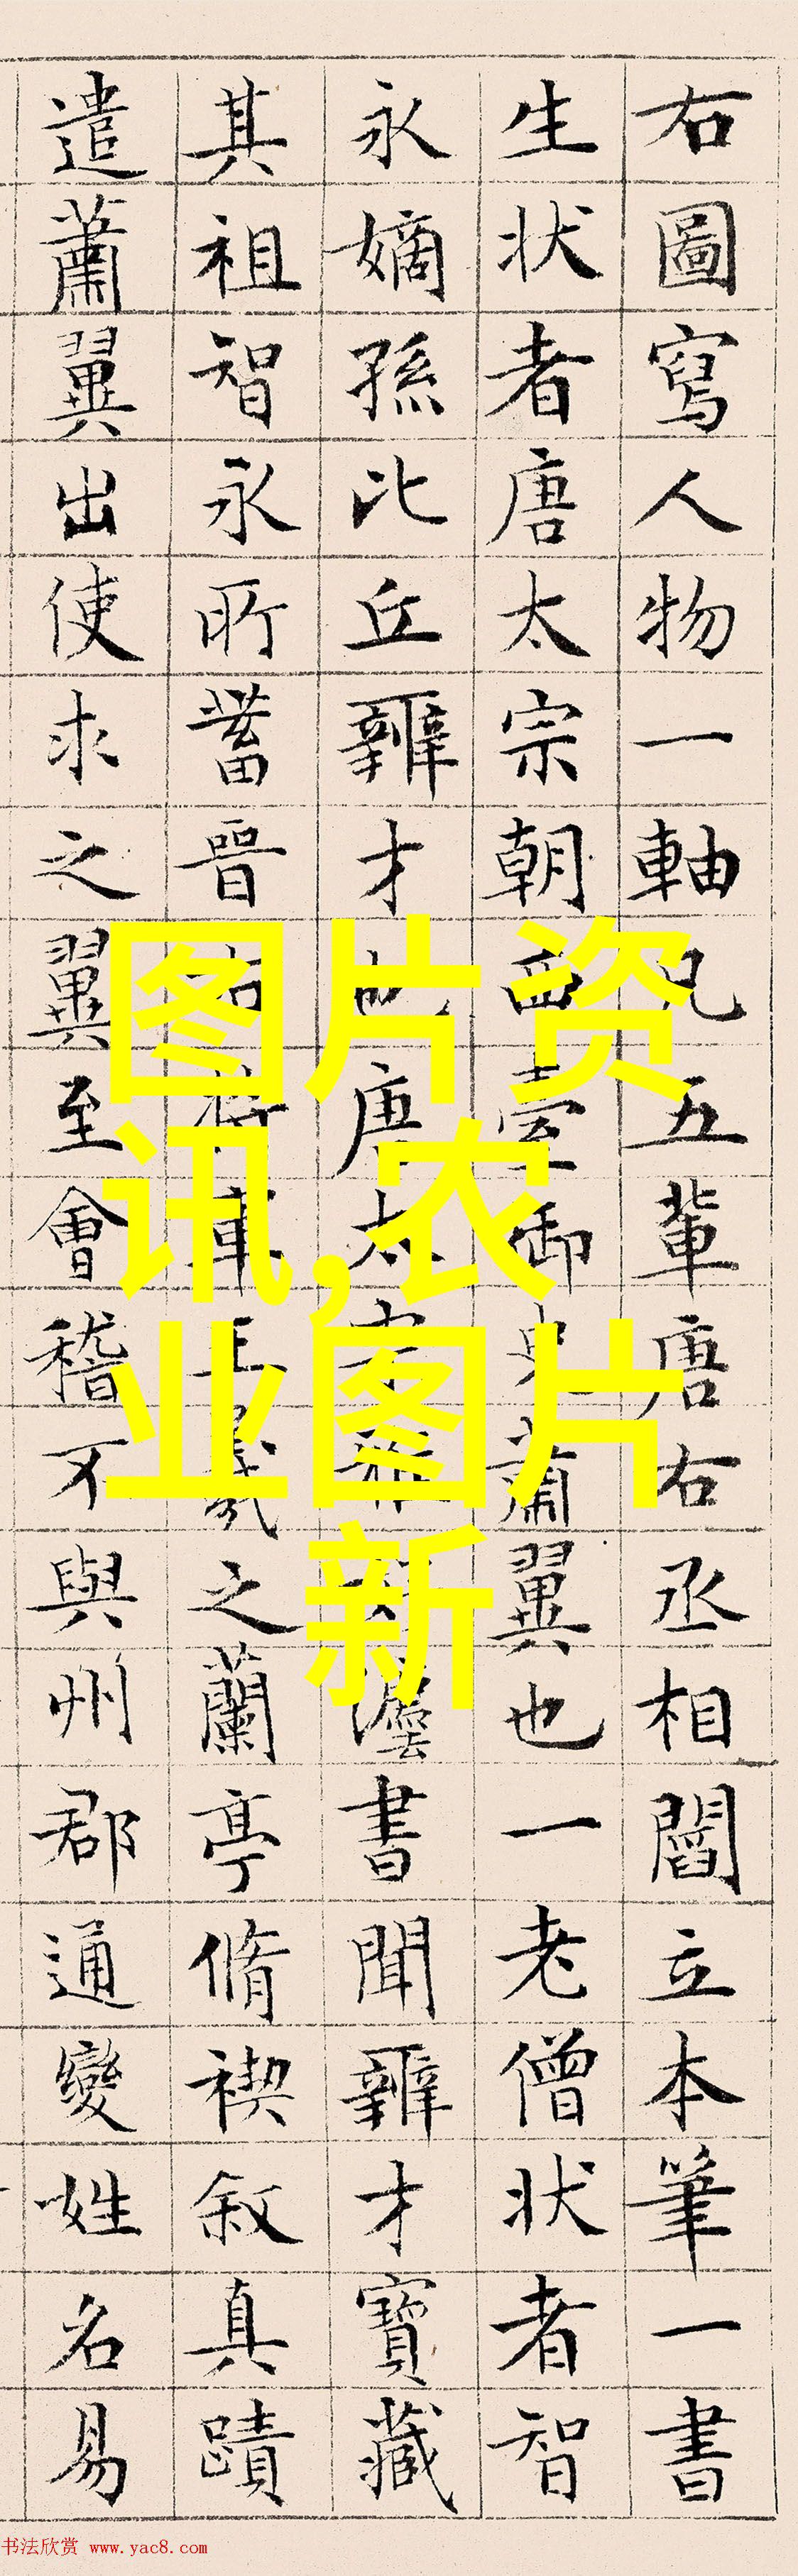 右圖寫人物一軸凡五輩唐右丞相閻立本筆一書
生狀者唐太宗朝西臺御史蕭翼也一老僧狀者智
永嫡孫比丘辯才也唐太宗雅好灋書聞辯才寶藏
其祖智永所蓄晉右將軍王羲之蘭亭脩禊敘真蹟
遣蕭翼出使求之翼至會稽不與州郡通變姓名易
图片资
讯,农
业图片
新
书法欣赏 www.yac8.com